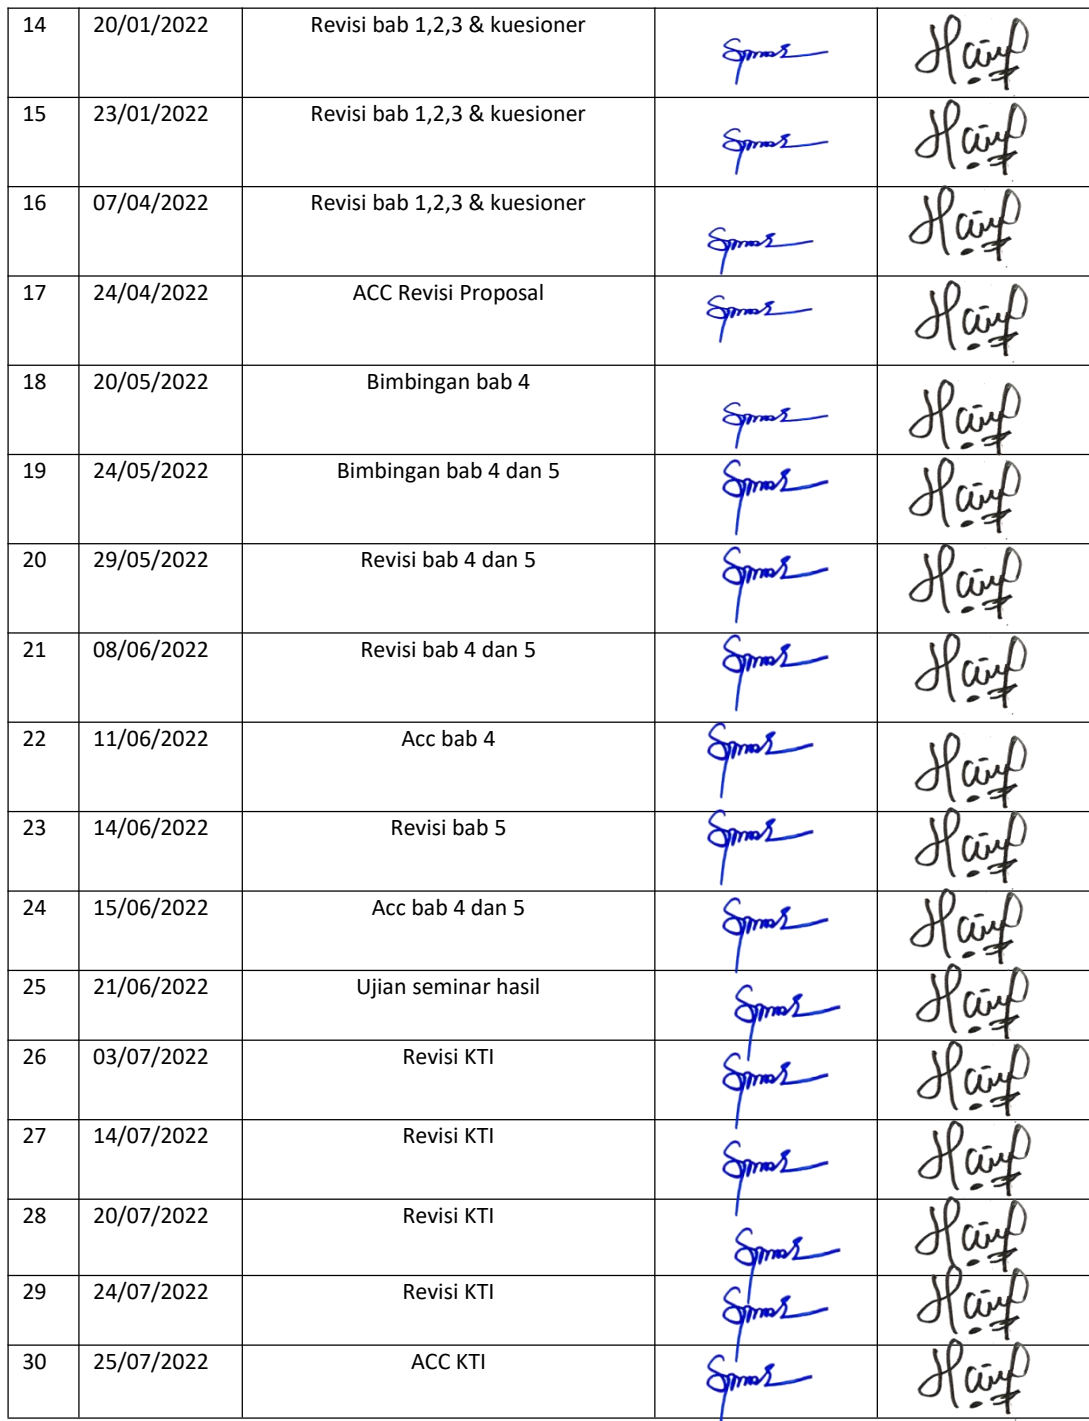 14 20/01/2022 Revisi bab 1,2,3 & kuesioner
15 23/01/2022 Revisi bab 1,2,3 & kuesioner
16 07/04/2022 Revisi bab 1,2,3 & kuesioner
17 24/04/2022 ACC Revisi Proposal
18 20/05/2022 Bimbingan bab 4
19 24/05/2022 Bimbingan bab 4 dan 5
20 29/05/2022 Revisi bab 4 dan 5
21 08/06/2022 Revisi bab 4 dan 5
22 11/06/2022 Acc bab 4
23 14/06/2022 Revisi bab 5
24 15/06/2022 Acc bab 4 dan 5
25 21/06/2022 Ujian seminar hasil
26 03/07/2022 Revisi KTI
27 14/07/2022 Revisi KTI
28 20/07/2022 Revisi KTI
29 24/07/2022 Revisi KTI
30 25/07/2022 ACC KTI